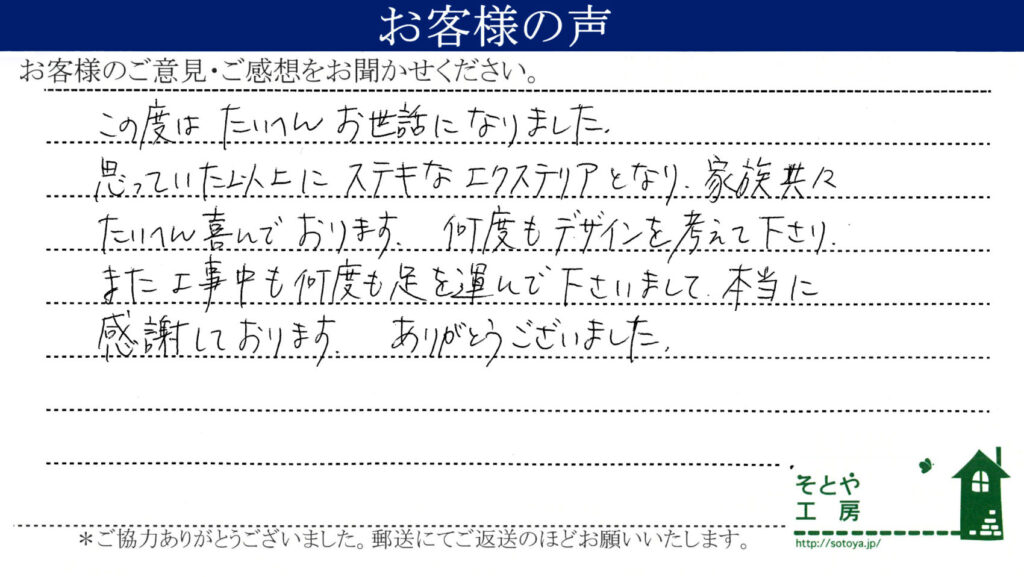 お客様の声
お客様のご意見・ご感想をお聞かせください。
この度は たいへん お世話に なりました。
思っていた以上に ステキな エクステリアとなり、家族共々
たいへん喜んで おります。 何度も デザインを 考えて下さり、
また 工事中も 何度も 足を運んで 下さいまして、本当に
感謝しております。 ありがとうございました。
そとや
工房
http://sotoya.jp/
＊ご協力ありがとうございました。郵送にてご返送のほどお願いいたします。